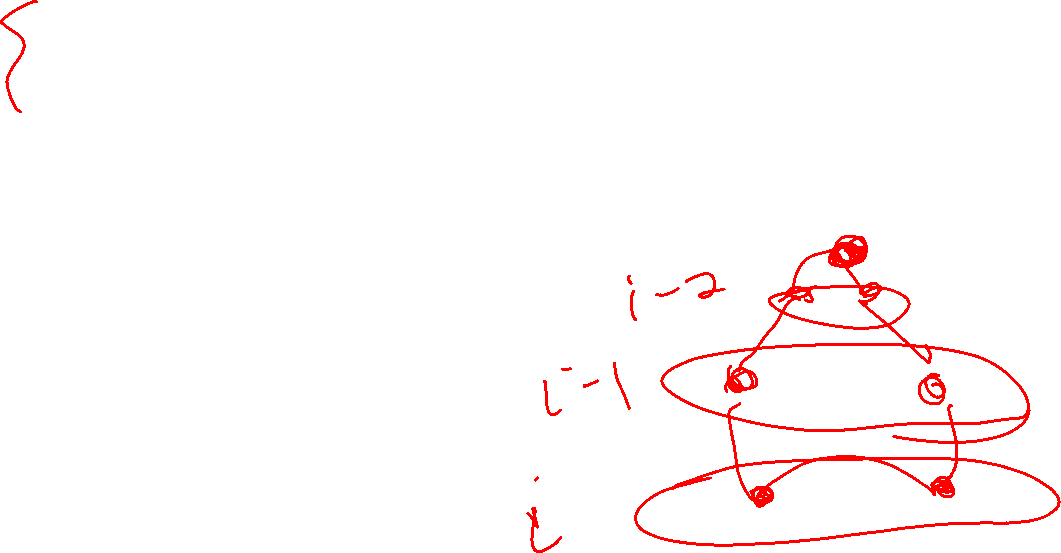 {
i-2
i-1
i